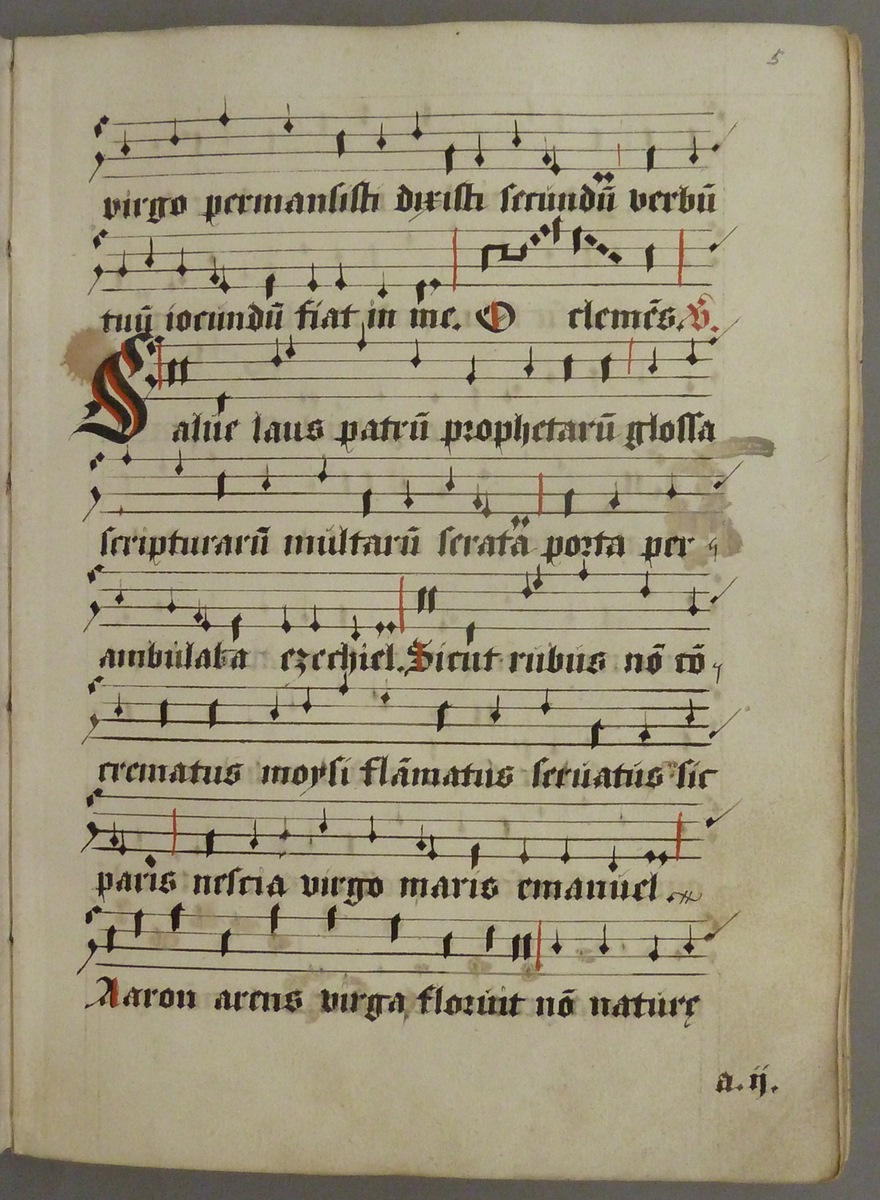 5
virgo permansisti dixisti secundū verbū
tuū iocundū fiat in me. O clemēs. V.
Salue laus patrū prophetarū glossa
scripturarū multarū serata porta per
ambulata ezechiel. Sicut rubus nō cō
crematus moysi flāmatus seruatus sic
paris nescia virgo maris emanuel.
Aaron arens virga floruit nō naturę
a. ij.